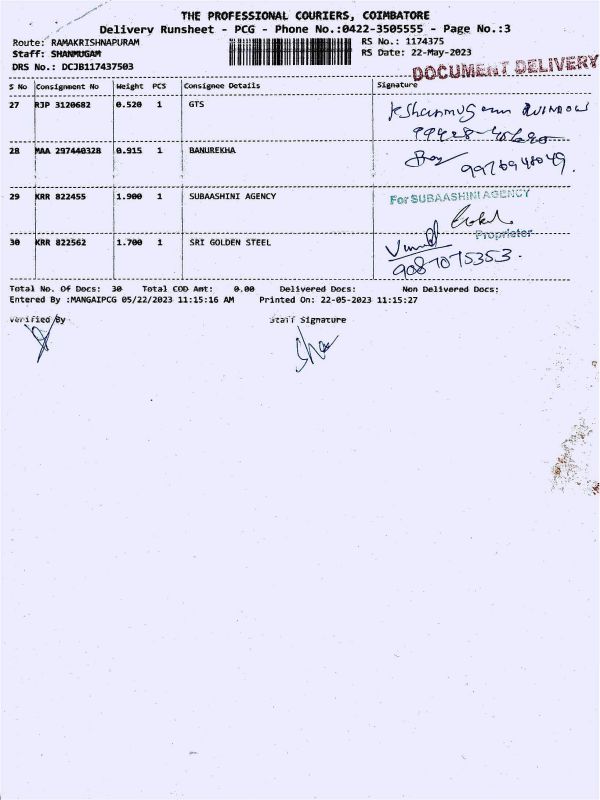 THE PROFESSIONAL COURIERS, COIMBATORE
Delivery Runsheet - PCG - Phone No.:0422-3505555 - Page No.:3
Route: RAMAKRISHNAPURAM RS No.: 1174375
Staff: SHANMUGAM RS Date: 22-May-2023
DRS No.: DCJB117437503
DOCUMENT DELIVERY
S No Consignment No Weight PCS Consignee Details Signature
27 RJP 3120682 0.520 1 GTS
28 MAA 297440328 0.915 1 BANUREKHA
9976948049.
29 KRR 822455 1.900 1 SUBAASHINI AGENCY For SUBAASHINI AGENCY
Proprietor
30 KRR 822562 1.700 1 SRI GOLDEN STEEL
9087075353.
Total No. Of Docs: 30 Total COD Amt: 0.00 Delivered Docs: Non Delivered Docs:
Entered By :MANGAIPCG 05/22/2023 11:15:16 AM Printed On: 22-05-2023 11:15:27
Verified By Staff Signature